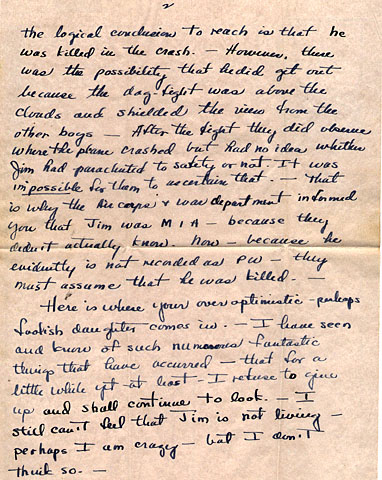 2
the logical conclusion to reach is that he
was killed in the crash. — However, there
was the possibility that he did get out
because the dog-fight was above the
clouds and shielded the view from the
other boys — After the fight they did observe
where the plane crashed but had no idea whether
Jim had parachuted to safety or not. It was
impossible for them to ascertain that. — That
is why the Air corps & war department informed
you that Jim was M I A — because they
didn't actually know. Now — because he
evidently is not recorded as PW — they
must assume that he was killed. —
Here is where your over optimistic - perhaps
foolish daughter comes in. — I have seen
and know of such numerous fantastic
things that have occurred — that for a
little while yet at least - I refuse to give
up and shall continue to look. — I
still can't feel that Jim is not living —
perhaps I am crazy — but I don't
think so. —